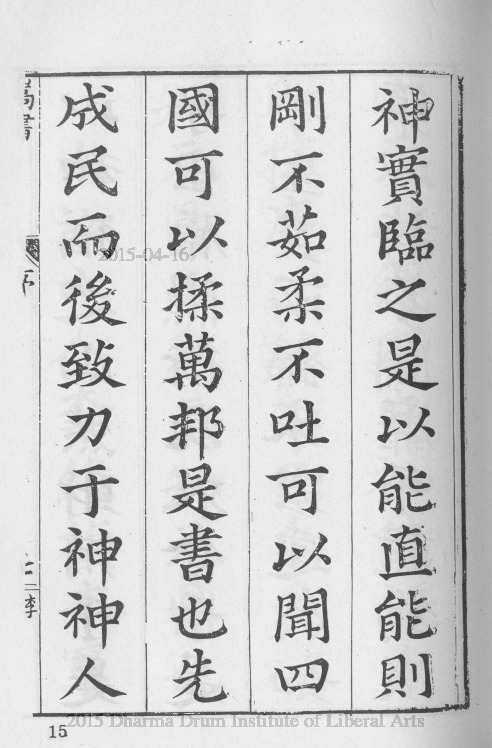 神實臨之是以能直能則
剛不茹柔不吐可以聞四
國可以揉萬邦是書也先
成民而後致力于神神人
序
李
15
2015-04-16
2015 Dharma Drum Institute of Liberal Arts